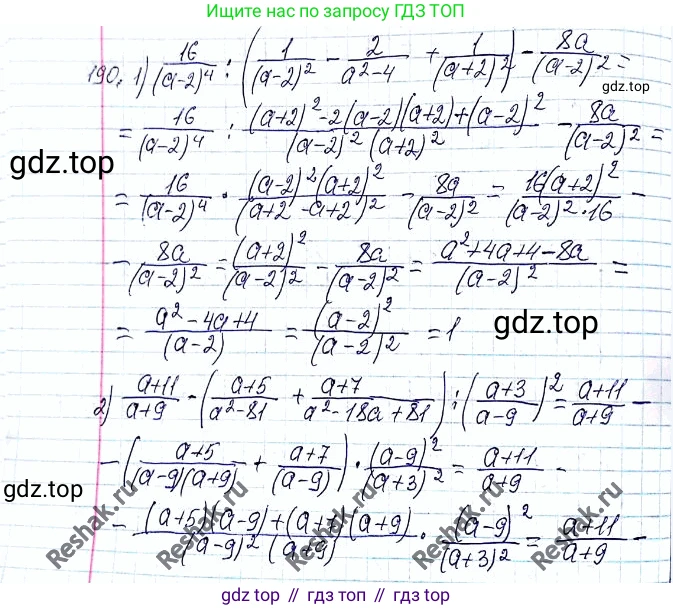 Ищите нас по запросу ГДЗ ТОП
190. 1) 16/(a-2)^4 : (1/(a-2)^2 - 2/(a^2-4) + 1/(a+2)^2) - 8a/(a-2)^2 =
= 16/(a-2)^4 : ((a+2)^2-2(a-2)(a+2)+(a-2)^2)/((a-2)^2(a+2)^2) - 8a/(a-2)^2 =
gdz.top
= 16/(a-2)^4 · ((a-2)^2(a+2)^2)/(a+2-a+2)^2 - 8a/(a-2)^2 = 16(a+2)^2/((a-2)^2·16) -
gdz.top
- 8a/(a-2)^2 = (a+2)^2/(a-2)^2 - 8a/(a-2)^2 = (a^2+4a+4-8a)/(a-2)^2 =
= (a^2-4a+4)/(a-2) = (a-2)^2/(a-2)^2 = 1
gdz.top
2) (a+11)/(a+9) - ((a+5)/(a^2-81) + (a+7)/(a^2-18a+81)) : ((a+3)/(a-9))^2 = (a+11)/(a+9) -
- ((a+5)/((a-9)(a+9)) + (a+7)/(a-9)) · (a-9)^2/(a+3)^2 = (a+11)/(a+9) -
gdz.top
- ((a+5)(a-9)+(a+7)(a+9))/((a-9)^2(a+9)) · (a-9)^2/(a+3)^2 = (a+11)/(a+9) -
Reshak.ru
Reshak.ru
Reshak.ru
Reshak.ru
gdz top // гдз топ // гдз.топ